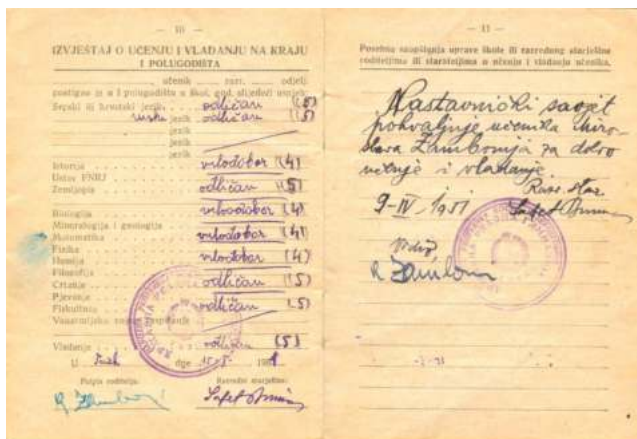 — 10 —
IZVJEŠTAJ O UČENJU I VLADANJU NA KRAJU
I POLUGODIŠTA
učenik razr. odjelj.
postigao je u I polugodištu u škol. god. slijedeći uspjeh:
Srpski ili hrvatski jezik odličan (5)
ruski jezik odličan (5)
jezik
jezik
jezik
Istorija vrlodobar (4)
Ustav FNRJ
Zemljopis odličan (5)
Biologija vrlodobar (4)
Mineralogija i geologija
Matematika vrlodobar (4)
Fizika
Hemija vrlodobar (4)
Filozofija
Crtanje odličan (5)
Pjevanje
Fiskultura odličan (5)
Vanarmijsko vojno
Vladanje odličan (5)
U dne 195
Potpis roditelja: Razredni starješina:
— 11 —
Posebna saopštenja uprave škole ili razrednog starješine
roditeljima ili starateljima o učenju i vladanju učenika.
Nastavnički savjet
pohvaljuje učenika Miro-
slava Zambonija za dobro
učenje i vladanje.
Razr. star.
9-IV-1951